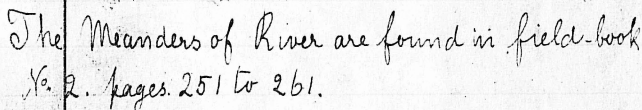 The Meanders of River are found in field-book
No. 2. pages. 251 to 261.